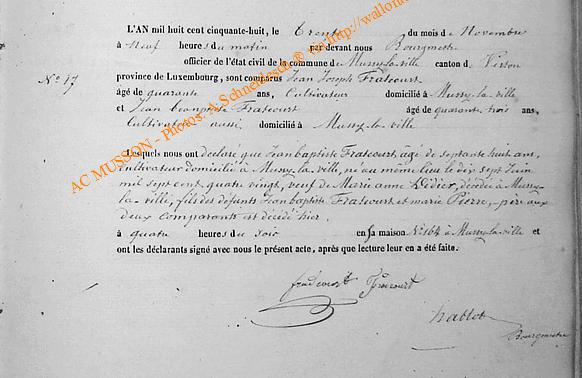 L'AN mil huit cent cinquante-huit, le Trente du mois de Novembre
à Neuf heures du matin par devant nous Bourgmestre
officier de l'état civil de la commune de Mussy-la-ville canton de Virton
N° 17 province de Luxembourg, sont comparus Jean Joseph Fratcourt
âgé de quarante ans, Cultivateur domicilié à Mussy-la-ville
et Jean Fratcourt âgé de quarante trois ans,
Cultivateur aussi domicilié à Mussy-la-ville
Lesquels nous ont déclaré que Jean baptiste Fratcourt, âgé de septante huit ans,
Cultivateur domicilié à Mussy-la-ville, né au même lieu le dix sept Juin
mil sept cent quatre vingt, veuf de Marie anne Didier, décédée à Mussy-
la-ville, fils des défunts Jean baptiste Fratcourt et marie Pierre, père aux
deux comparants est décédé hier
à quatre heures du soir en sa maison N° 164 à Mussy-la-ville et
ont les déclarants signé avec nous le présent acte, après que lecture leur en a été faite.
Bourgmestre
AC MUSSON - Photos: A. Schneidesch @ de http://wallo